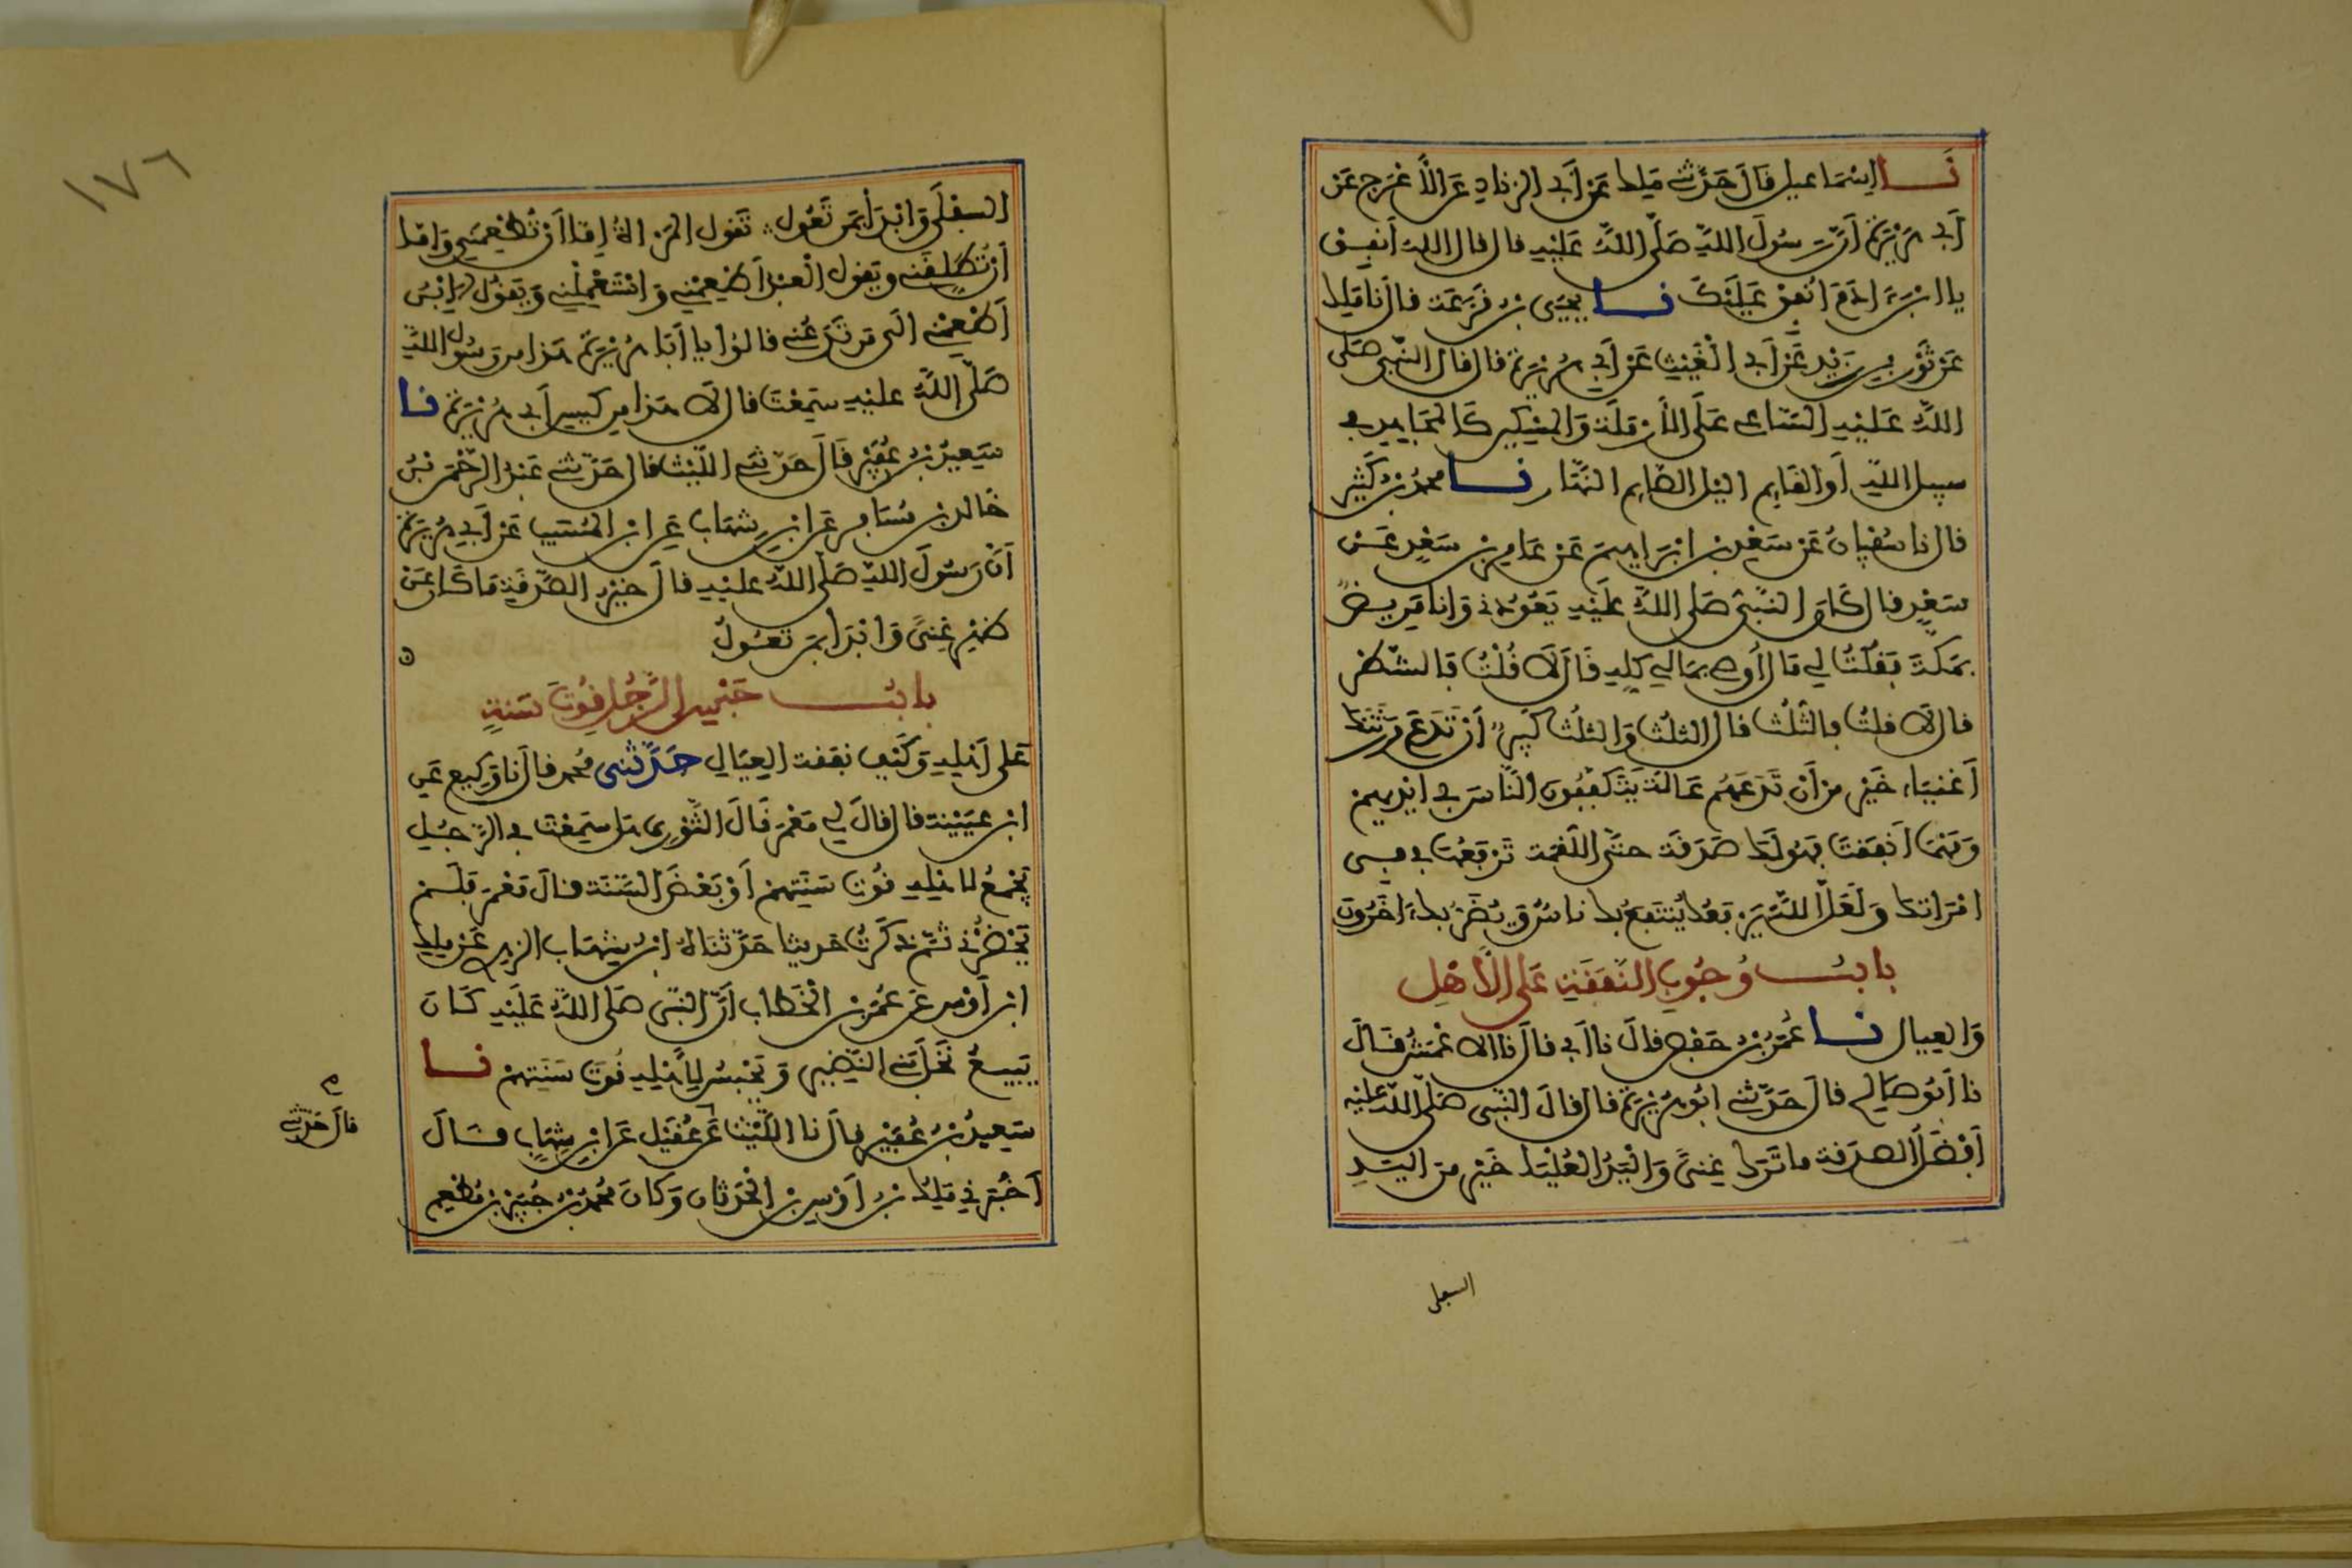 نا إسماعيل قال حدثني ملك عن أبي الزناد عن الأعرج عن
أبي هريرة أن رسول الله صلى الله عليه قال قال الله أنفق
يا ابن ءادم أنفق عليك نا يحيى بن قزعة قال نا ملك
عن ثور بن زيد عن أبي الغيث عن أبي هريرة قال قال النبي صلى
الله عليه الساعي على الأرملة والمسكين كالمجاهد في
سبيل الله أو القايم اليل الصايم النهار نا محمد بن كثير
قال نا سفيان عن سعد بن ابراهيم عن عامر بن سعد عن
سعد قال كان النبي صلى الله عليه يعودني وانا مريض
بمكة فقلت لي مال أوصي بمالي كله قال لا قلت فالشطر
قال لا قلت فالثلث قال الثلث والثلث كثير أن تدع ورثتك
أغنياء خير من أن تدعهم عالة يتكففون الناس في أيديهم
ومهما أنفقت فهو لك صدقة حتى اللقمة ترفعها في في
امرأتك ولعل الله يرفعك ينتفع بك ناس ويضر بك ءاخرون
باب وجوب النفقة على الأهل
والعيال نا عمر بن حفص قال نا أبي قال نا الاعمش قال
نا أبو صالح قال حدثني أبو هريرة قال قال النبي صلى الله عليه
أفضل الصدقة ما ترك غنى واليد العليا خير من اليد
السفلى
١٧٦
السفلى وابدأ بمن تعول تقول المرأة إما أن تطعمني وإما
أن تطلقني ويقول العبد أطعمني واستعملني ويقول الابن
أطعمني الى من تدعني قالوا يا أبا هريرة هذا من رسول الله
صلى الله عليه سمعت قال لا هذا من كيس أبي هريرة نا
سعيد بن عفير قال حدثني الليث قال حدثني عبد الرحمن بن
خالد بن مسافر عن ابن شهاب عن ابن المسيب عن أبي هريرة
أن رسول الله صلى الله عليه قال خير الصدقة ما كان عن
ظهر غنى وابدأ بمن تعول
باب حبس الرجل قوت سنة
على أهله وكيف نفقت العيال حدثني محمد قال نا وكيع عن
ابن عيينة قال قال لي معمر قال الثوري هل سمعت في الرجل
يجمع لاهله قوت سنتهم أو بعض السنة قال معمر فلم
يحضرني ثم ذكرت حديثا حدثناه ابن شهاب الزهري عن ملك
ابن أوس عن عمر بن الخطاب أن النبي صلى الله عليه كان
يبيع نخل بني النضير ويحبس لأهله قوت سنتهم نا
سعيد بن عفير قال نا الليث عن عقيل عن ابن شهاب قال
أخبرني ملك بن أوس بن الحدثان وكان محمد بن جبير بن مطعم
قال حدثني